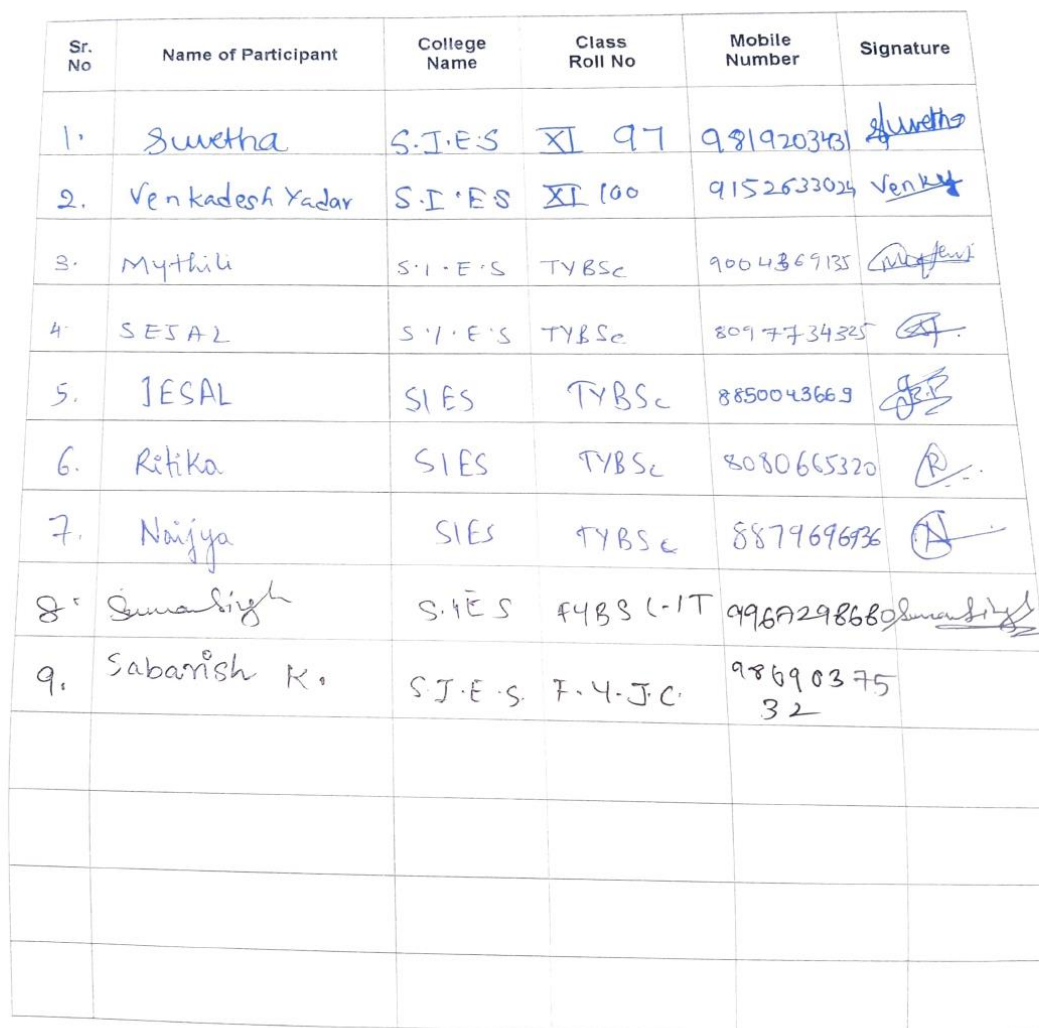 Sr. No Name of Participant College Name Class Roll No Mobile Number Signature
1. Suvetha S.I.E.S XI 97 9819203431 Suvetha
2. Venkadesh Yadav S.I.E.S XI 100 9152633024 Venky
3. Mythili S.I.E.S TYBSc 9004369135
4. SEJAL S.I.E.S TYBSc 8097734325
5. JESAL SIES TYBSc 8850043669
6. Ritika SIES TYBSc 8080665320 R
7. Naijya SIES TYBSc 8879696936 N
8. Suman Singh S.IES FYBSC-IT Suman Singh
9. Sabarish K. S.I.E.S. F.Y.J.C. 9869037532